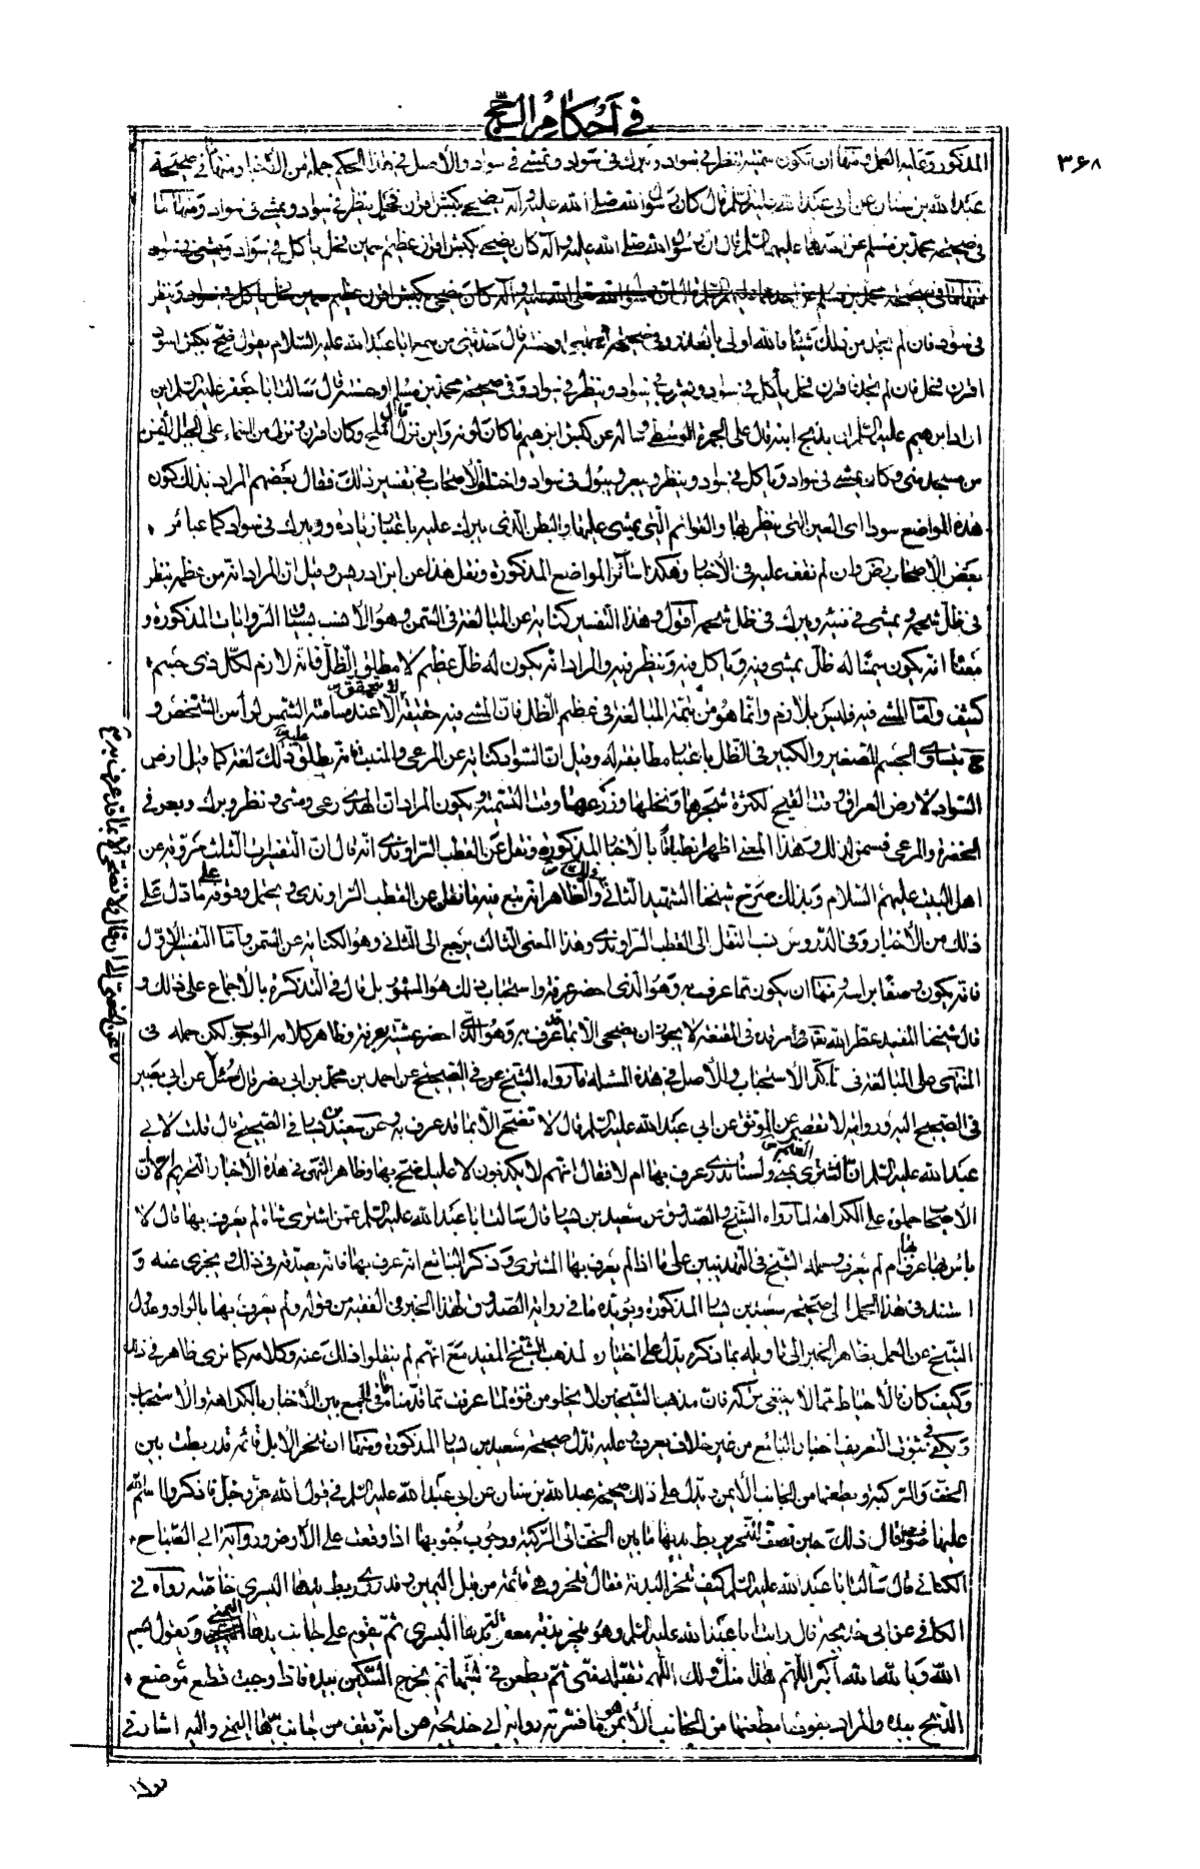 في أحكام الحج
٣٦٨
المذكور وعليه العمل ومنها ان تكون سمينة تنظر في سواد وتبرك في سواد وتمشي في سواد والأصل في هذا الحكم جملة من الأخبار منها في صحيحة
عبد الله بن سنان عن ابي عبد الله عليه السلم قال كان رسول الله صلى الله عليه وآله يضحي بكبش اقرن فحل ينظر في سواد ويمشي في سواد ومنها ما
في صحيحة محمد بن مسلم عن احدهما عليهما السلم قال ان رسول الله صلى الله عليه وآله كان يضحي بكبش اقرن عظيم سمين فحل يأكل في سواد ويمشي في سواد
وينظر
في سواد فان لم تجد من ذلك شيئا فالله اولى بالعذر وفي صحيحة الحلبي او حسنته قال حدثني من سمع ابا عبد الله عليه السلام يقول ضح بكبش اسود
اقرن فحل فان لم تجد فاقرن فحل يأكل في سواد ويشرب في سواد وينظر في سواد وفي صحيحة محمد بن مسلم او حسنته قال سالت ابا جعفر عليه السلم اين
اراد ابرهيم عليه السلم ان يذبح ابنه قال على الجمرة الوسطى وسالته عن كبش ابرهيم ما كان لونه واين نزل قال املح وكان اقرن ونزل من السماء على الجبل الأيمن
من مسجد منى وكان يمشي في سواد ويأكل في سواد وينظر ويبعر ويبول في سواد واختلف الأصحاب في تفسير ذلك فقال بعضهم المراد بذلك كون
هذه المواضع سودا اى العين التي ينظر بها والقوائم التي يمشي عليها والبطن الذي يبرك عليه باعتبار زيادة ويبرك في سواد كما عبائر
بعض الأصحاب وان لم نقف عليه في الأخبار وهكذا سائر المواضع المذكورة ونقل هذا عن ابن ادريس وقيل ان المراد انه من عظمه ينظر
في ظل شحمه ويمشي في فيئه ويبرك في ظل شحمه أقول وهذا التفسير كناية عن المبالغة في السمن وهو الأنسب بسياق الروايات المذكورة و
معناه انه يكون سمينا له ظل يمشي فيه ويأكل فيه وينظر فيه والمراد انه يكون له ظل عظيم لا مطلق الظل فانه لازم لكل ذي جسم
كثيف وأما المشي فيه فليس بلازم وانما هو من تتمة المبالغة في عظم الظل فان المشي فيه حقيقة لا يتحقق الا عند مسامتة الشمس لرأس الشخص و
ح يتساوى الجسم الصغير والكبير في الظل باعتبار مطابقته له وقيل ان السواد كناية عن المرعى والمنبت فانه يطلق عليه ذلك لغة كما قيل ارض
السواد لارض العراق وقت الفتح لكثرة شجرها ونخلها وزرعها وقت التسمية ويكون المراد ان الهدى رعى ومشى ونظر وبرك وبعر في
الخضرة والمرعى فسمن لذلك وهذا المعنى اظهر انطباقا بالأخبار المذكورة ونقل عن القطب الراوندى انه قال ان التفسيرات الثلث مروية عن
اهل البيت عليهم السلام وبذلك صرح شيخنا الشهيد الثاني والظاهر انه تبع فيه ما نقل عن القطب الراوندى ويحتمل وقوفه على ما دل على
ذلك من الأخبار وفي الدروس نسب النقل الى القطب الراوندى وهذا المعنى الثالث يرجع الى الثاني وهو الكناية عن السمن وأما التفسير الأول
فانه يكون وصفا براسه ومنها ان يكون مما عرف به وهو الذي احضر عرفة واستحباب ذلك هو المشهور بل قال في التذكرة بالأجماع على ذلك و
قال شيخنا المفيد عطر الله تعالى مرقده في المقنعة لا يجوز ان يضحي الا بما قد عرف به وهو الذي احضر عشية عرفة بعرفة وظاهر كلامه الوجوب لكن حمله في
المنتهى على المبالغة في تأكد الاستحباب والأصل في هذه المسئلة ما رواه الشيخ عن في الصحيح عن احمد بن محمد بن ابي نصر قال سئل عن ابي بصير
في الصحيح اليه وروايته لا تقصر عن الموثق عن ابي عبد الله عليه السلم قال لا تضح الا بما قد عرف به وعن سعيد بن يسار في الصحيح قال قلت لابي
عبد الله عليه السلم انا نشترى الغنم بمنى ولسنا ندري عرف بها ام لا فقال انهم لا يكذبون لا عليك ضح بها وظاهر النهى في هذه الأخبار التحريم الا ان
الأصحاب حملوه على الكراهة لما رواه الشيخ والصدوق عن سعيد بن يسار قال سالت ابا عبد الله عليه السلم عمن اشترى شاة لم يعرف بها قال لا
باس بها عرف بها ام لم يعرف وحمله الشيخ في التهذيبين على ما اذا لم يعرف بها المشتري وذكر البايع انه عرف بها فانه يصدقه في ذلك ويجزى عنه و
استند في هذا الحمل الى صحيحة سعيد بن يسار المذكورة ويؤيده ما في رواية الصدوق لهذا الخبر في الفقيه من قوله ولم يعرف بها بالواو وعدول
الشيخ عن العمل بظاهر الخبر الى تأويله بما ذكره يدل على اختياره لمذهب الشيخ المفيد مع انهم لم ينقلوا ذلك عنه وكلامه كما ترى ظاهر في ذلك
وكيف كان فالأحتياط مما لا ينبغي تركه فان مذهب الشيخين لا يخلو من قوة لما عرفت مما قدمناه في الجمع بين الأخبار بالكراهة والاستحباب
ويكفي في ثبوت التعريف اخبار البائع من غير خلاف يعرف وعليه تدل صحيحة سعيد بن يسار المذكورة ومنها ان ينحر الابل قائمة قد ربطت بين
الخف والركبة ويطعنها من الجانب الأيمن ويدل على ذلك صحيحة عبد الله بن سنان عن ابي عبد الله عليه السلم في قول الله عز وجل فاذكروا اسم الله
عليها صواف قال ذلك حين تصف للنحر يربط يديها ما بين الخف الى الركبة ووجوب جنوبها اذا وقعت على الأرض ورواية ابي الصباح
الكناني قال سألت ابا عبد الله عليه السلم كيف تنحر البدنة فقال تنحر وهي قائمة من قبل اليمين وربط يدها اليسرى خاصة رواه في
الكافي عن ابي خديجة قال رايت ابا عبد الله عليه السلم وهو ينحر بدنته معقولة يدها اليسرى ثم يقوم على جانب يدها اليمنى ويقول بسم
الله وبالله والله أكبر اللهم هذا منك ولك اللهم تقبله مني ثم يطعن في لبتها ثم يخرج السكين بيده فاذا وجبت قطع موضع
الذبح بيده والمراد بقولنا يطعنها من الجانب الأيمن هو ما فسرته رواية ابي خديجة من انه يقف من جانب يدها اليمنى واليه اشار في